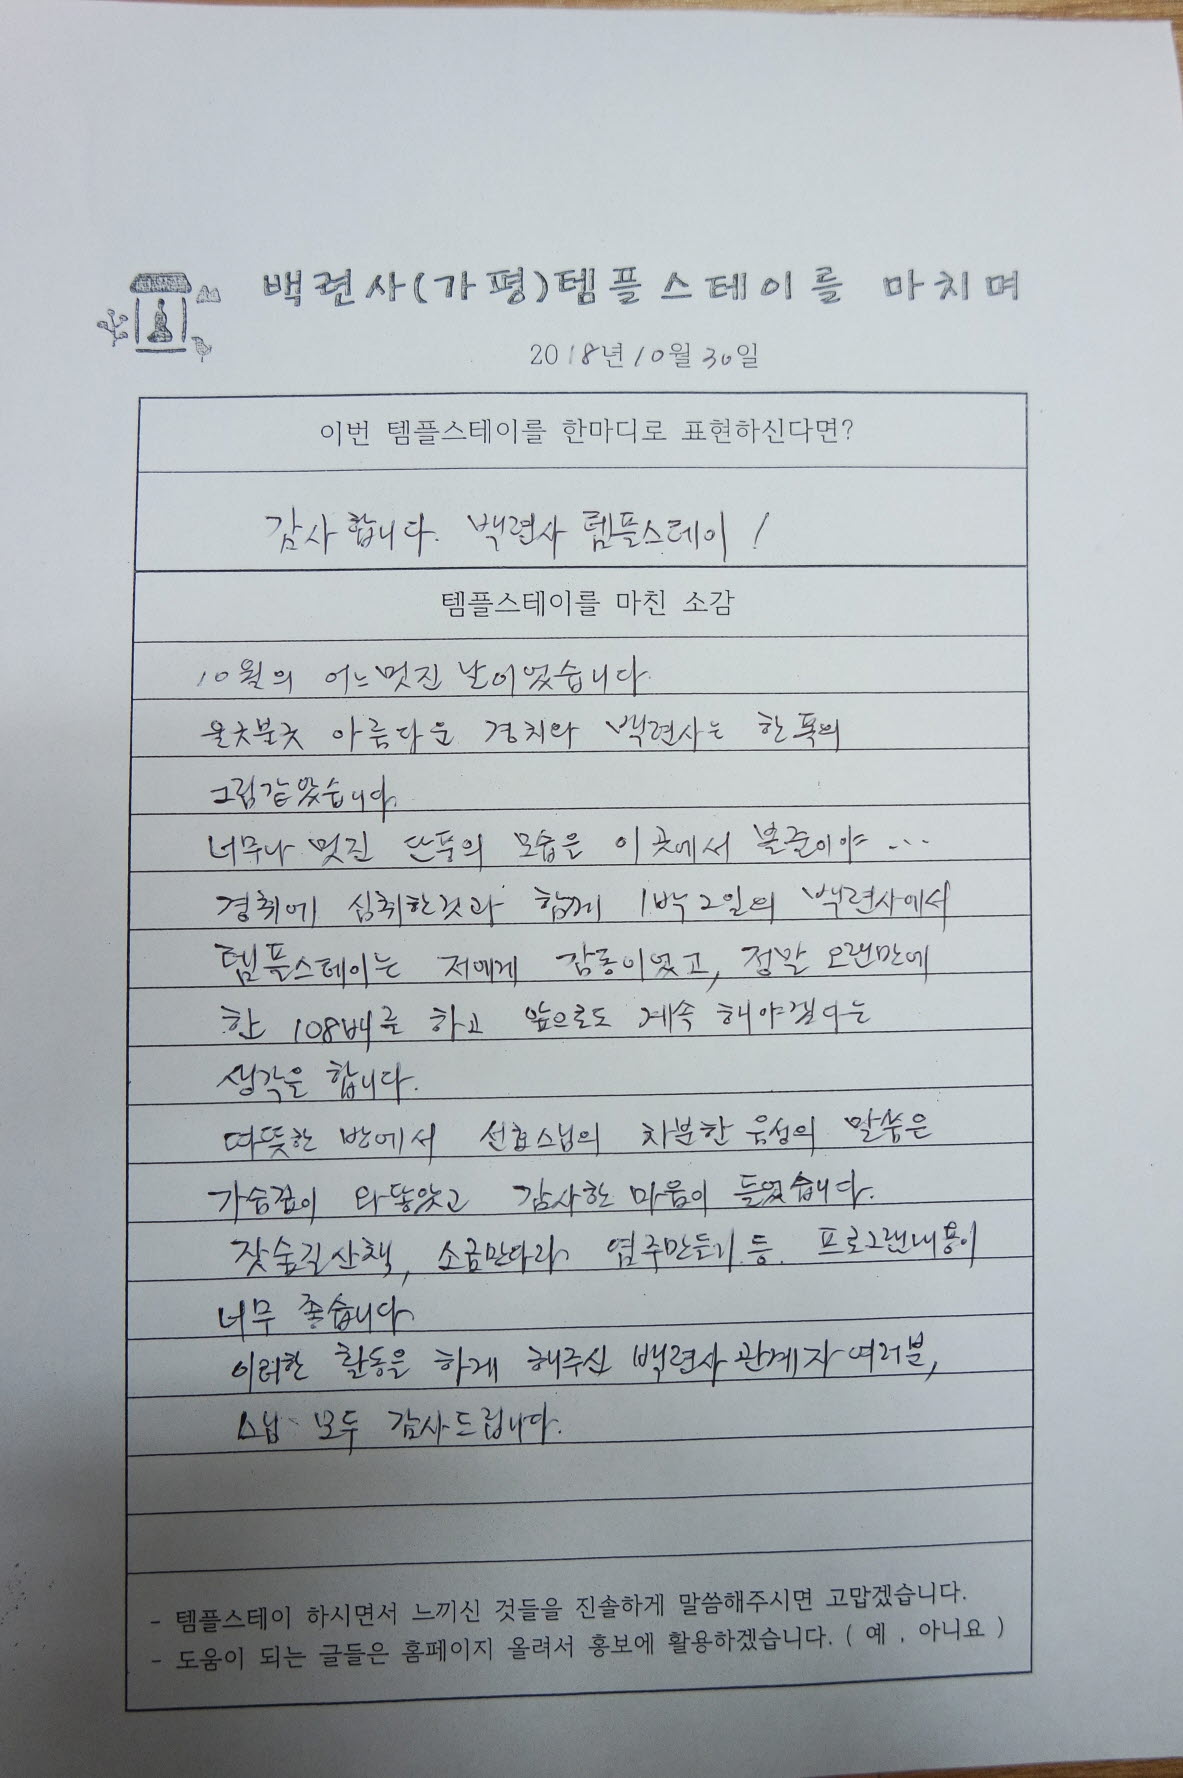 백련사(가평)템플스테이를 마치며
2018년 10월 30일
이번 템플스테이를 한마디로 표현하신다면?
감사합니다. 백련사 템플스테이!
템플스테이를 마친 소감
10월의 어느멋진 날이었습니다.
울긋불긋 아름다운 경치와 백련사는 한폭의
그림같았습니다.
너무나 멋진 단풍의 모습은 이곳에서 볼줄이야...
경취에 심취한것과 함께 1박2일의 백련사에서
템플스테이는 저에게 감동이었고, 정말 오랜만에
한 108배를 하고 앞으로도 계속 해야겠다는
생각을 합니다.
따뜻한 방에서 선효스님의 차분한 음성의 말씀은
가슴깊이 와닿았고 감사한 마음이 들었습니다.
잣숲길산책, 소금만다라 염주만들기 등. 프로그램내용이
너무 좋습니다
이러한 활동을 하게 해주신 백련사 관계자 여러분,
스님 모두 감사드립니다.
- 템플스테이 하시면서 느끼신 것들을 진솔하게 말씀해주시면 고맙겠습니다.
- 도움이 되는 글들은 홈페이지 올려서 홍보에 활용하겠습니다. ( 예 , 아니요 )